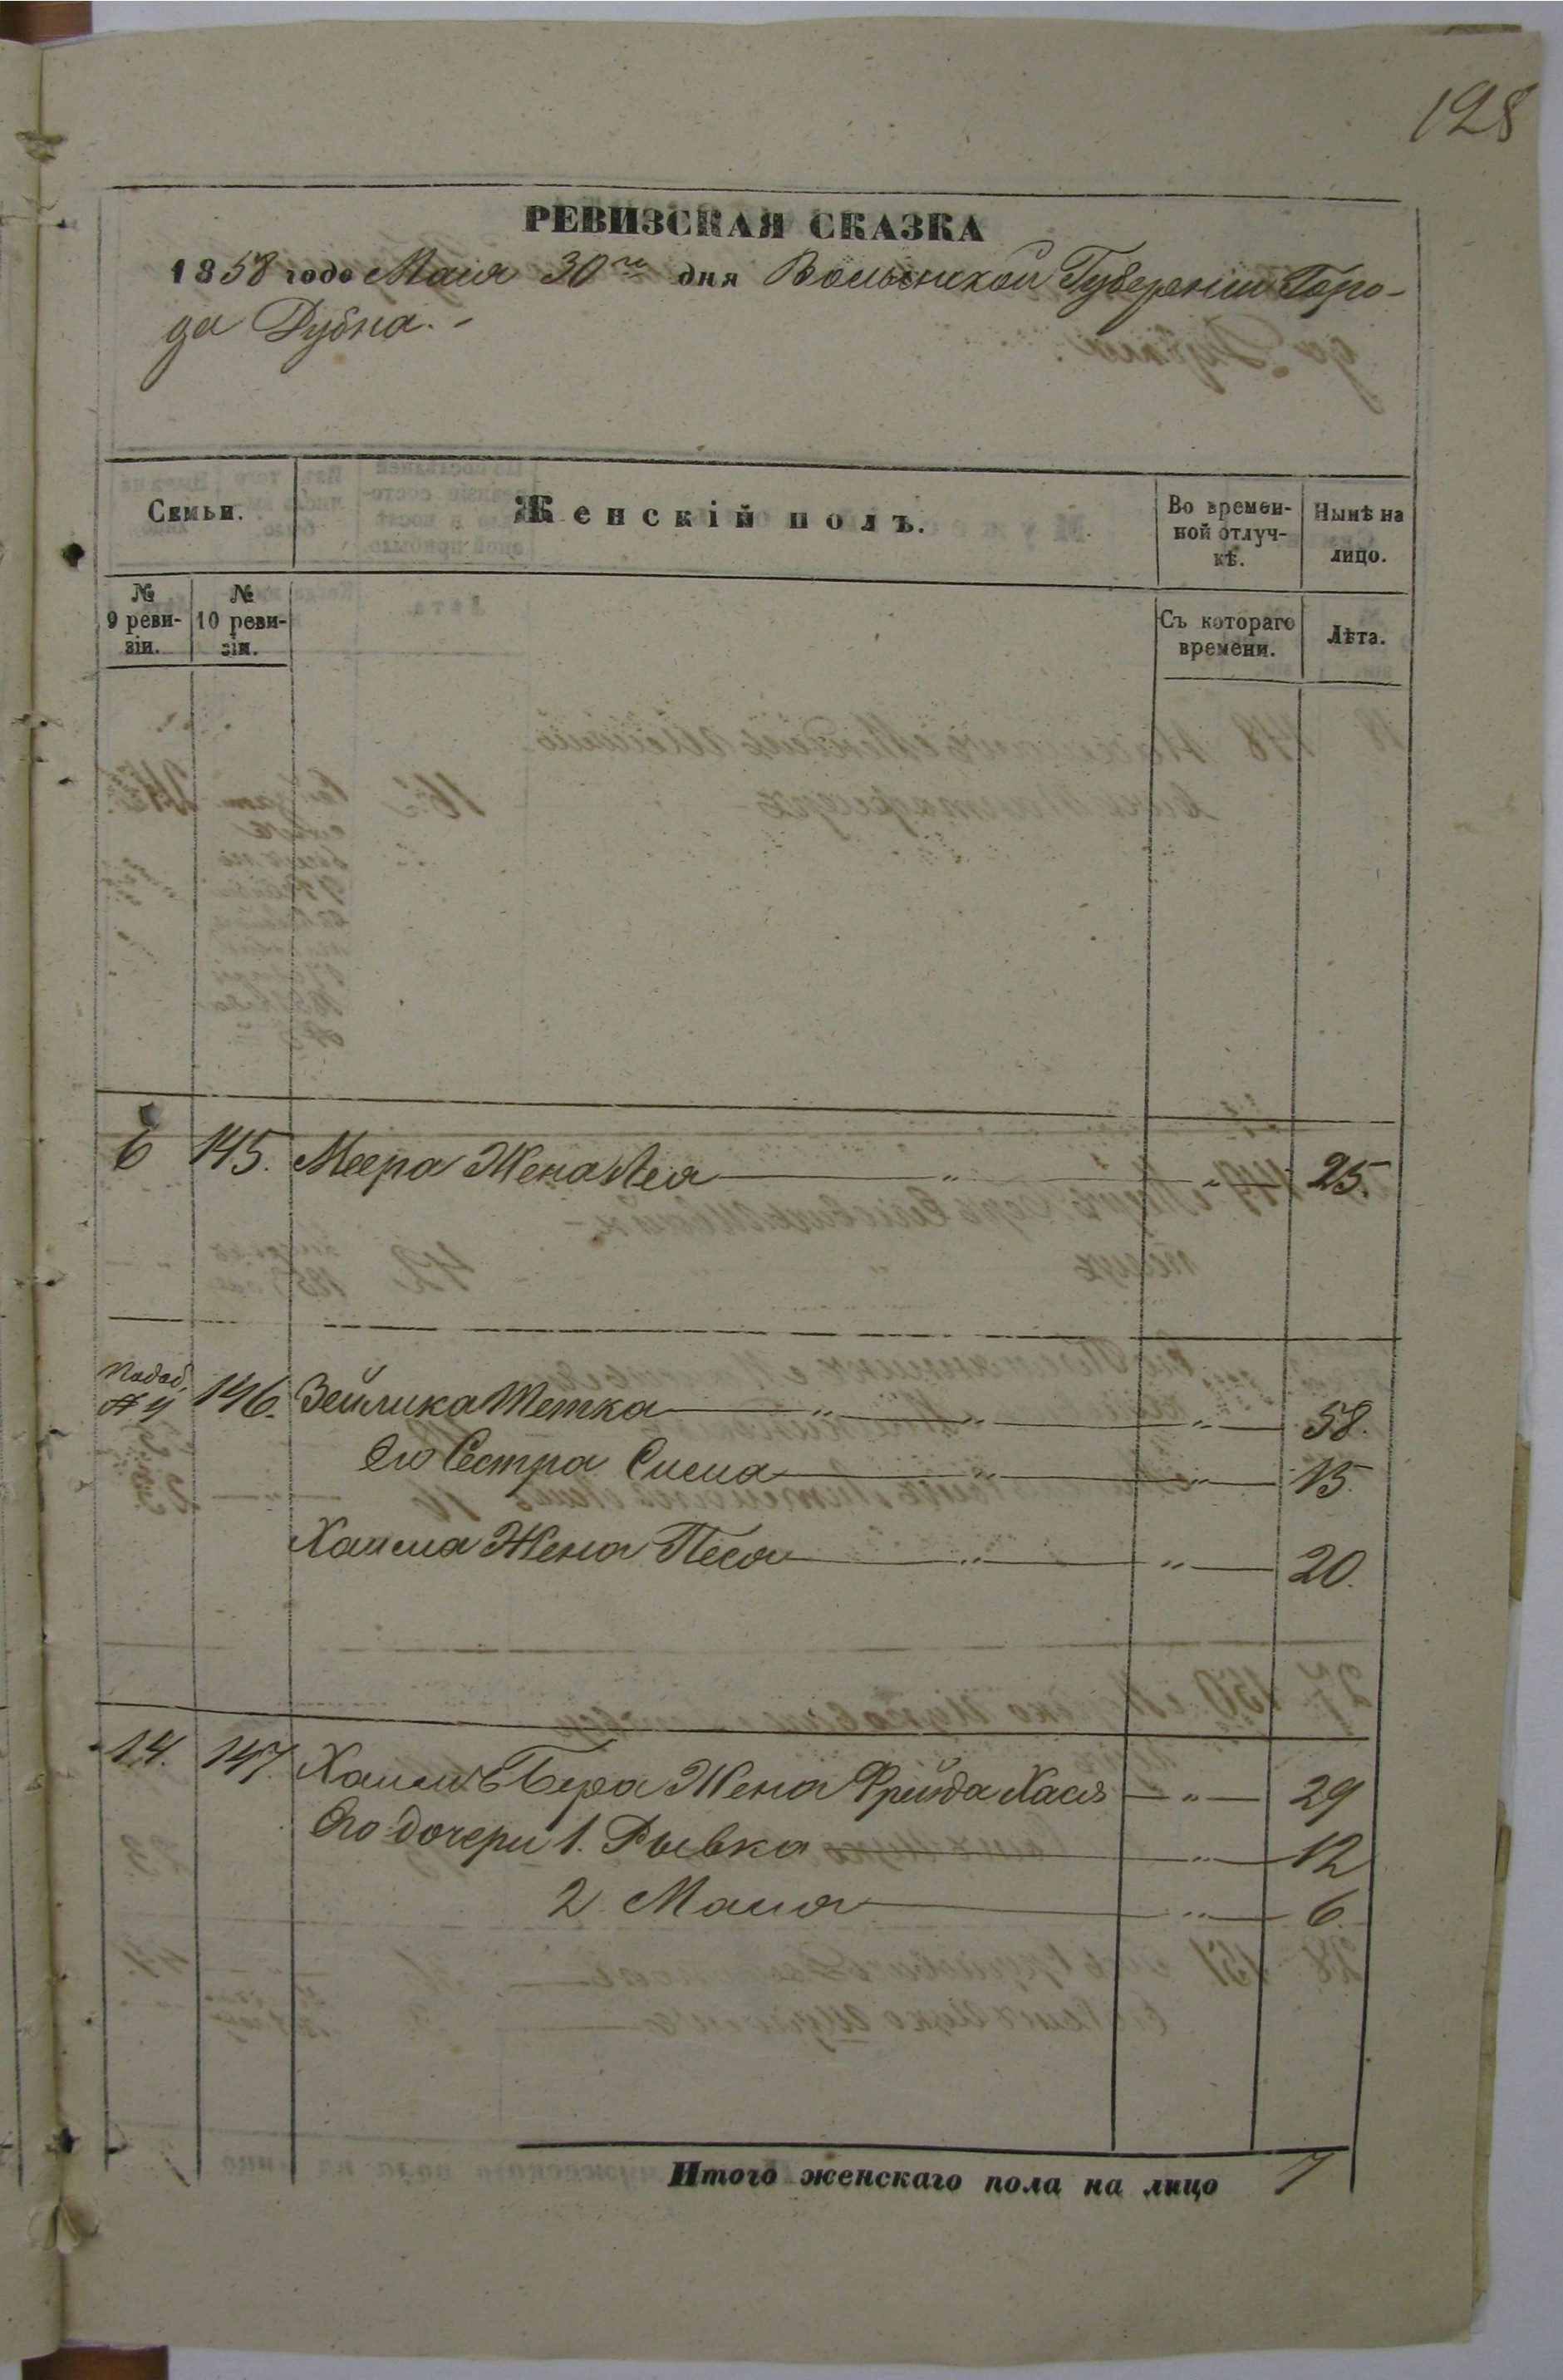 128
РЕВИЗСКАЯ СКАЗКА
1858 года Маия 30го дня Волынской Губерніи Горо-
да Дубна.-
Семьи.
Женскій полъ.
Во времен-
ной отлуч-
кѣ.
Нынѣ на
лицо.
№
9 реви-
зіи.
№
10 реви-
зіи.
Съ котораго
времени.
Лѣта.
6 145. Меера Жена Лея " " 25.
146. Зейлика Тетка " " " 58.
Его Сестра Сима " " 15.
Хаима Жена Песя " " 20.
14. 147. Хаимъ Бера Жена Фрейда Хася " 29
Его дочери 1. Рывка " 12
2. Маия " 6.
Итого женскаго пола на лицо 7